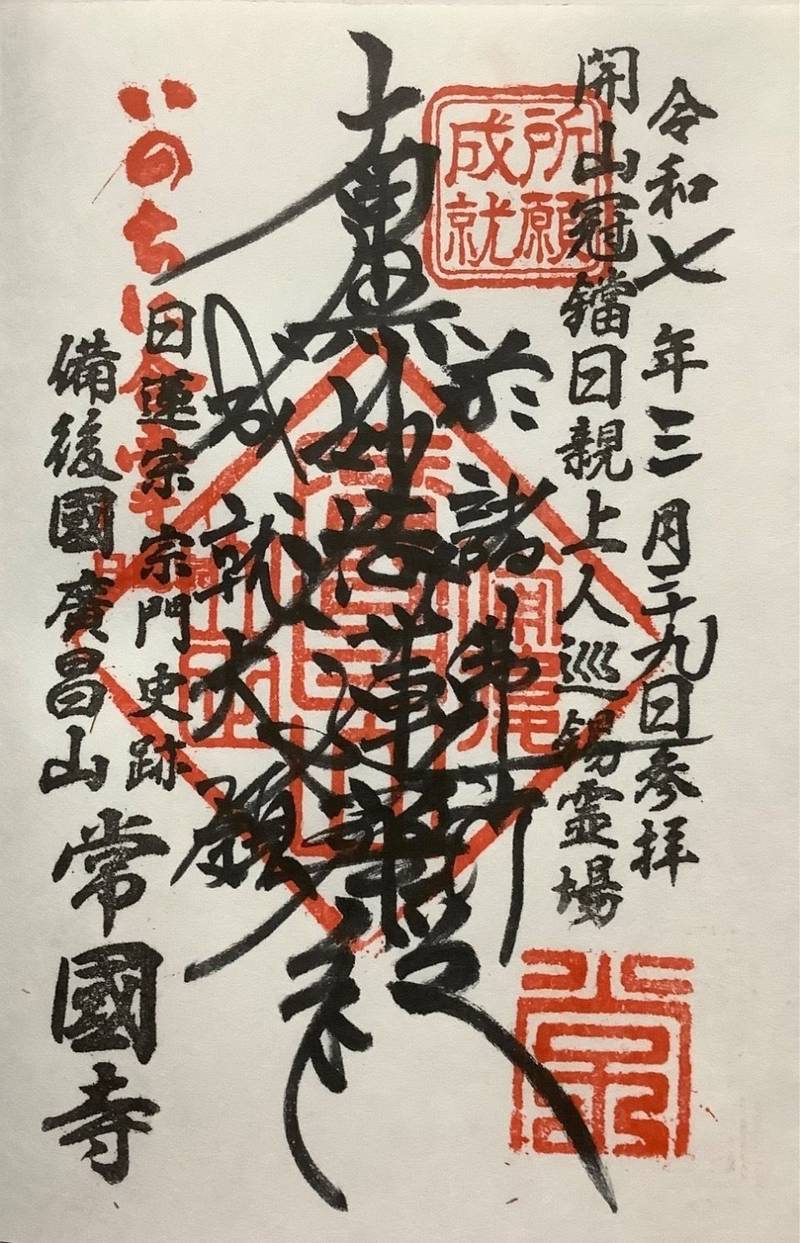 令和七年三月二十九日参拝
開山冠鐺日親上人巡錫霊場
所願
成就
於諸佛所
南無妙法蓮華経
成就大願
いのち
日蓮宗 宗門史跡
備後國廣昌山
常國寺